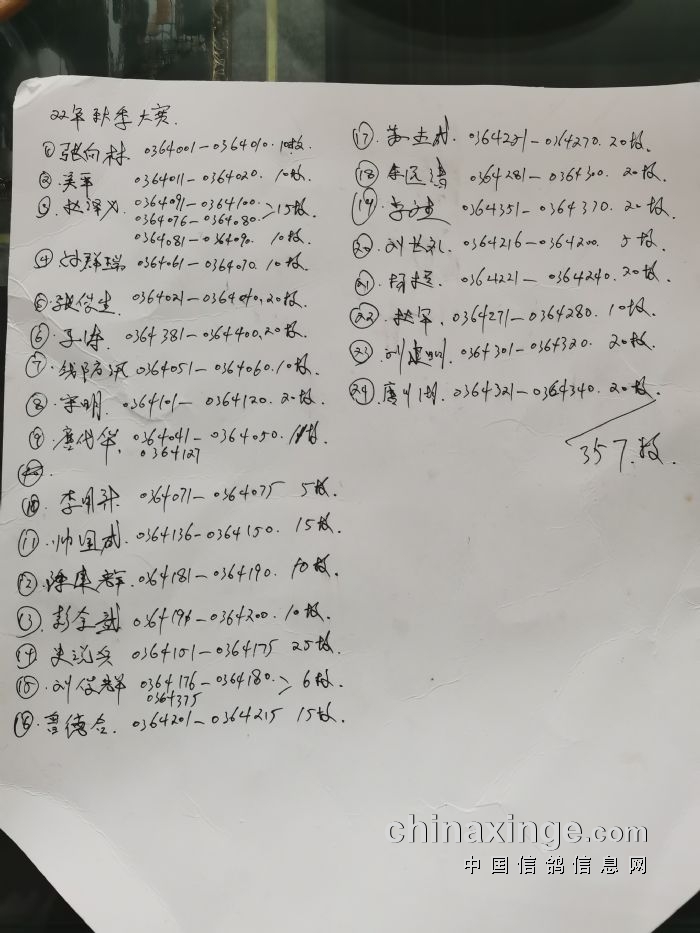 22年秋季大赛.
① 张向林 0364001-0364010. 10枚.
② 吴军 0364011-0364020. 10枚.
③ 赵泽义 0364091-0364100. >15枚.
0364076-0364080.
0364081-0364090. 10枚.
④ 群瑞 0364061-0364070. 10枚.
⑤ 张俊生 0364021-0364040, 20枚.
⑥ 0364381-0364400, 20枚.
⑦ 钱防汛 0364051-0364060. 10枚.
⑧ 明. 0364101-0364120. 20枚.
⑨ 唐代华. 0364041-0364050. 11枚.
0364127
⑩ 李明升 0364071-0364075 5枚.
⑪ 帅国武. 0364136-0364150. 15枚.
⑫ 陈建群. 0364181-0364190. 10枚.
⑬ 彭金武 0364191-0364200. 10枚.
⑭ 史说兵 0364151-0364175 25枚.
⑮ 刘俊群 0364176-0364180. >6枚.
0364375
⑯ 鲁德合. 0364201-0364215 15枚.
⑰ 武. 0364251-0364270. 20枚.
⑱ 0364281-0364300. 20枚.
⑲ 0364351-0364370. 20枚.
⑳ 刘长礼. 0364216-0364200. 5枚.
㉑ 0364221-0364240. 20枚.
㉒ 赵军. 0364271-0364280. 10枚.
㉓ 刘建明. 0364301-0364320. 20枚.
㉔ 唐 0364321-0364340. 20枚.
357.枚.
chinaxinge.com
中国信鸽信息网